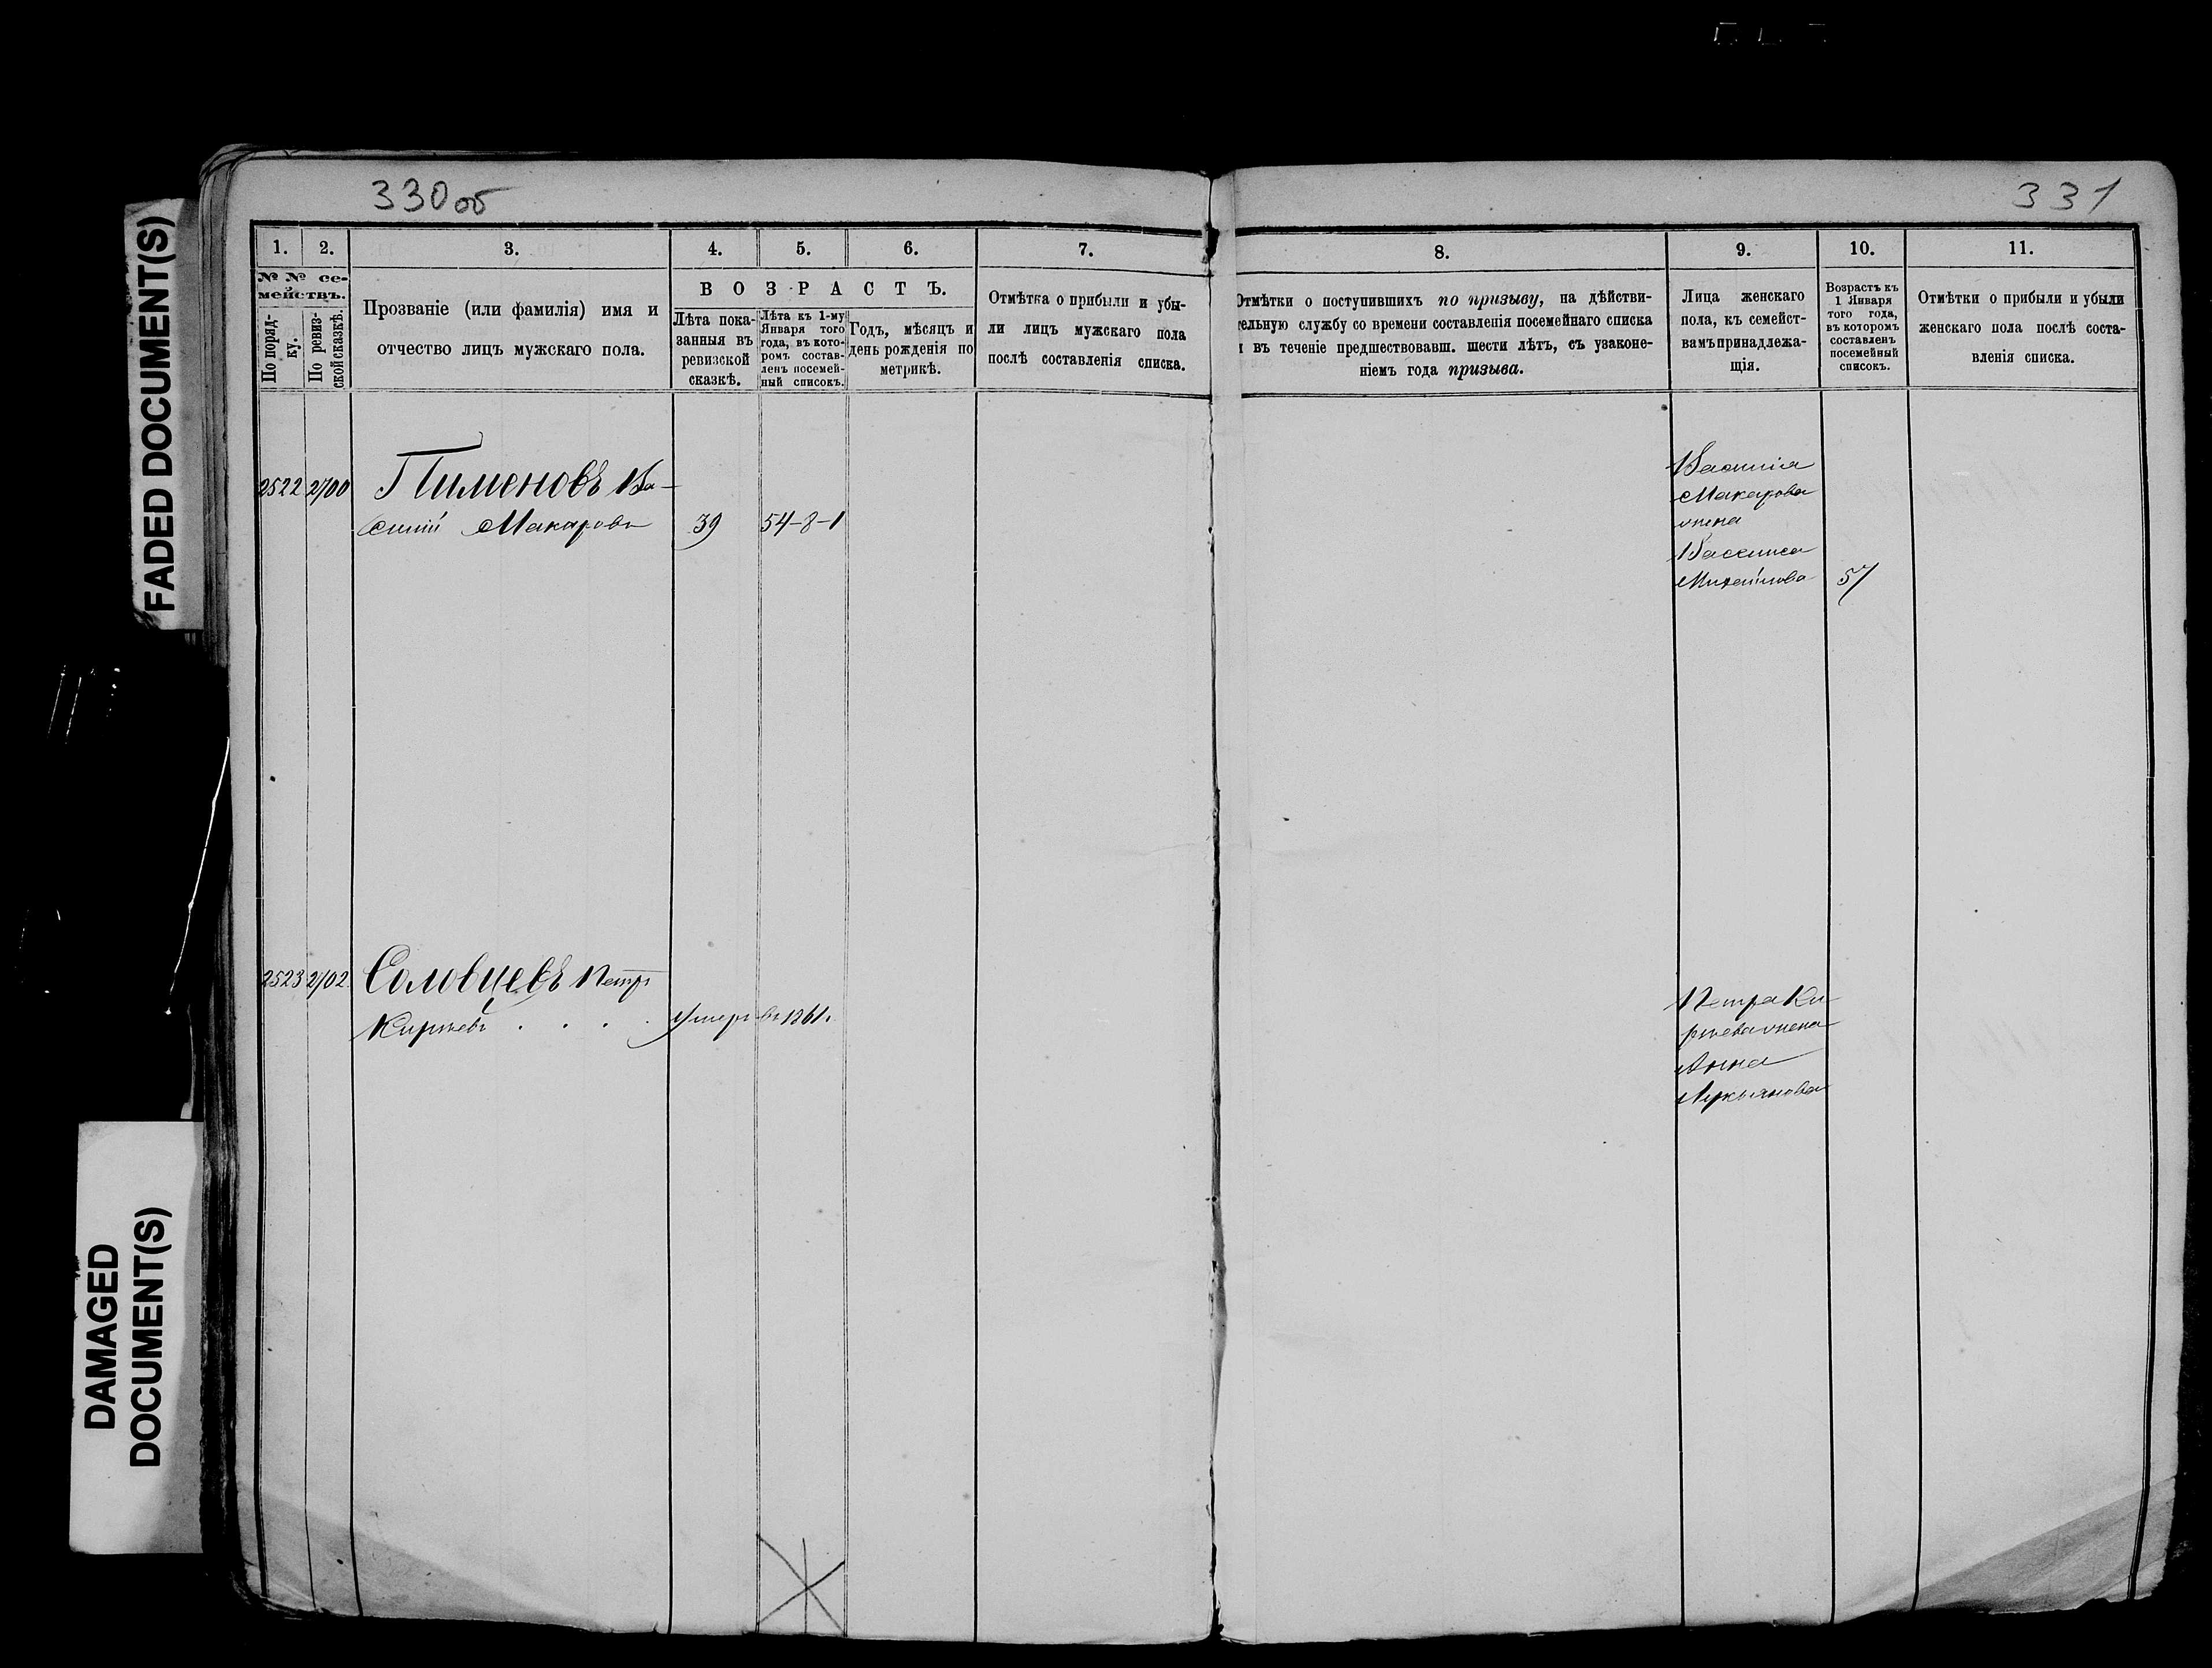 330об
331
FADED DOCUMENT(S)
DAMAGED
DOCUMENT(S)
1. 2. 3. 4. 5. 6. 7.
№ № се-
мействъ.
По поряд-
ку.
По ревиз-
ской сказкѣ.
Прозваніе (или фамилія) имя и
отчество лицъ мужскаго пола.
ВОЗРАСТЪ.
Лѣта пока-
занныя въ
ревизской
сказкѣ.
Лѣта къ 1-му
Января того
года, въ кото-
ромъ состав-
ленъ посемей-
ный списокъ.
Годъ, мѣсяцъ и
день рожденія по
метрикѣ.
Отмѣтка о прибыли и убы-
ли лицъ мужскаго пола
послѣ составленія списка.
8. 9. 10. 11.
Отмѣтки о поступившихъ по призыву, на дѣйстви-
тельную службу со времени составленія посемейнаго списка
и въ теченіе предшествовавш. шести лѣтъ, съ узаконе-
ніемъ года призыва.
Лица женскаго
пола, къ семейст-
вамъ принадлежа-
щія.
Возрастъ къ
1 Января
того года,
въ которомъ
составленъ
посемейный
списокъ.
Отмѣтки о прибыли и убыли
женскаго пола послѣ соста-
вленія списка.
2522 2700 Пименовъ Ва-
силій Макаровъ 39 54-8-1
Василія
Макарова
жена
Василиса
Михайлова 57
2523 2702 Соловцевъ Петръ
Киріевъ . . . . Умеръ въ 1861.
Петра Ки-
ріева жена
Анна
Лукьянова